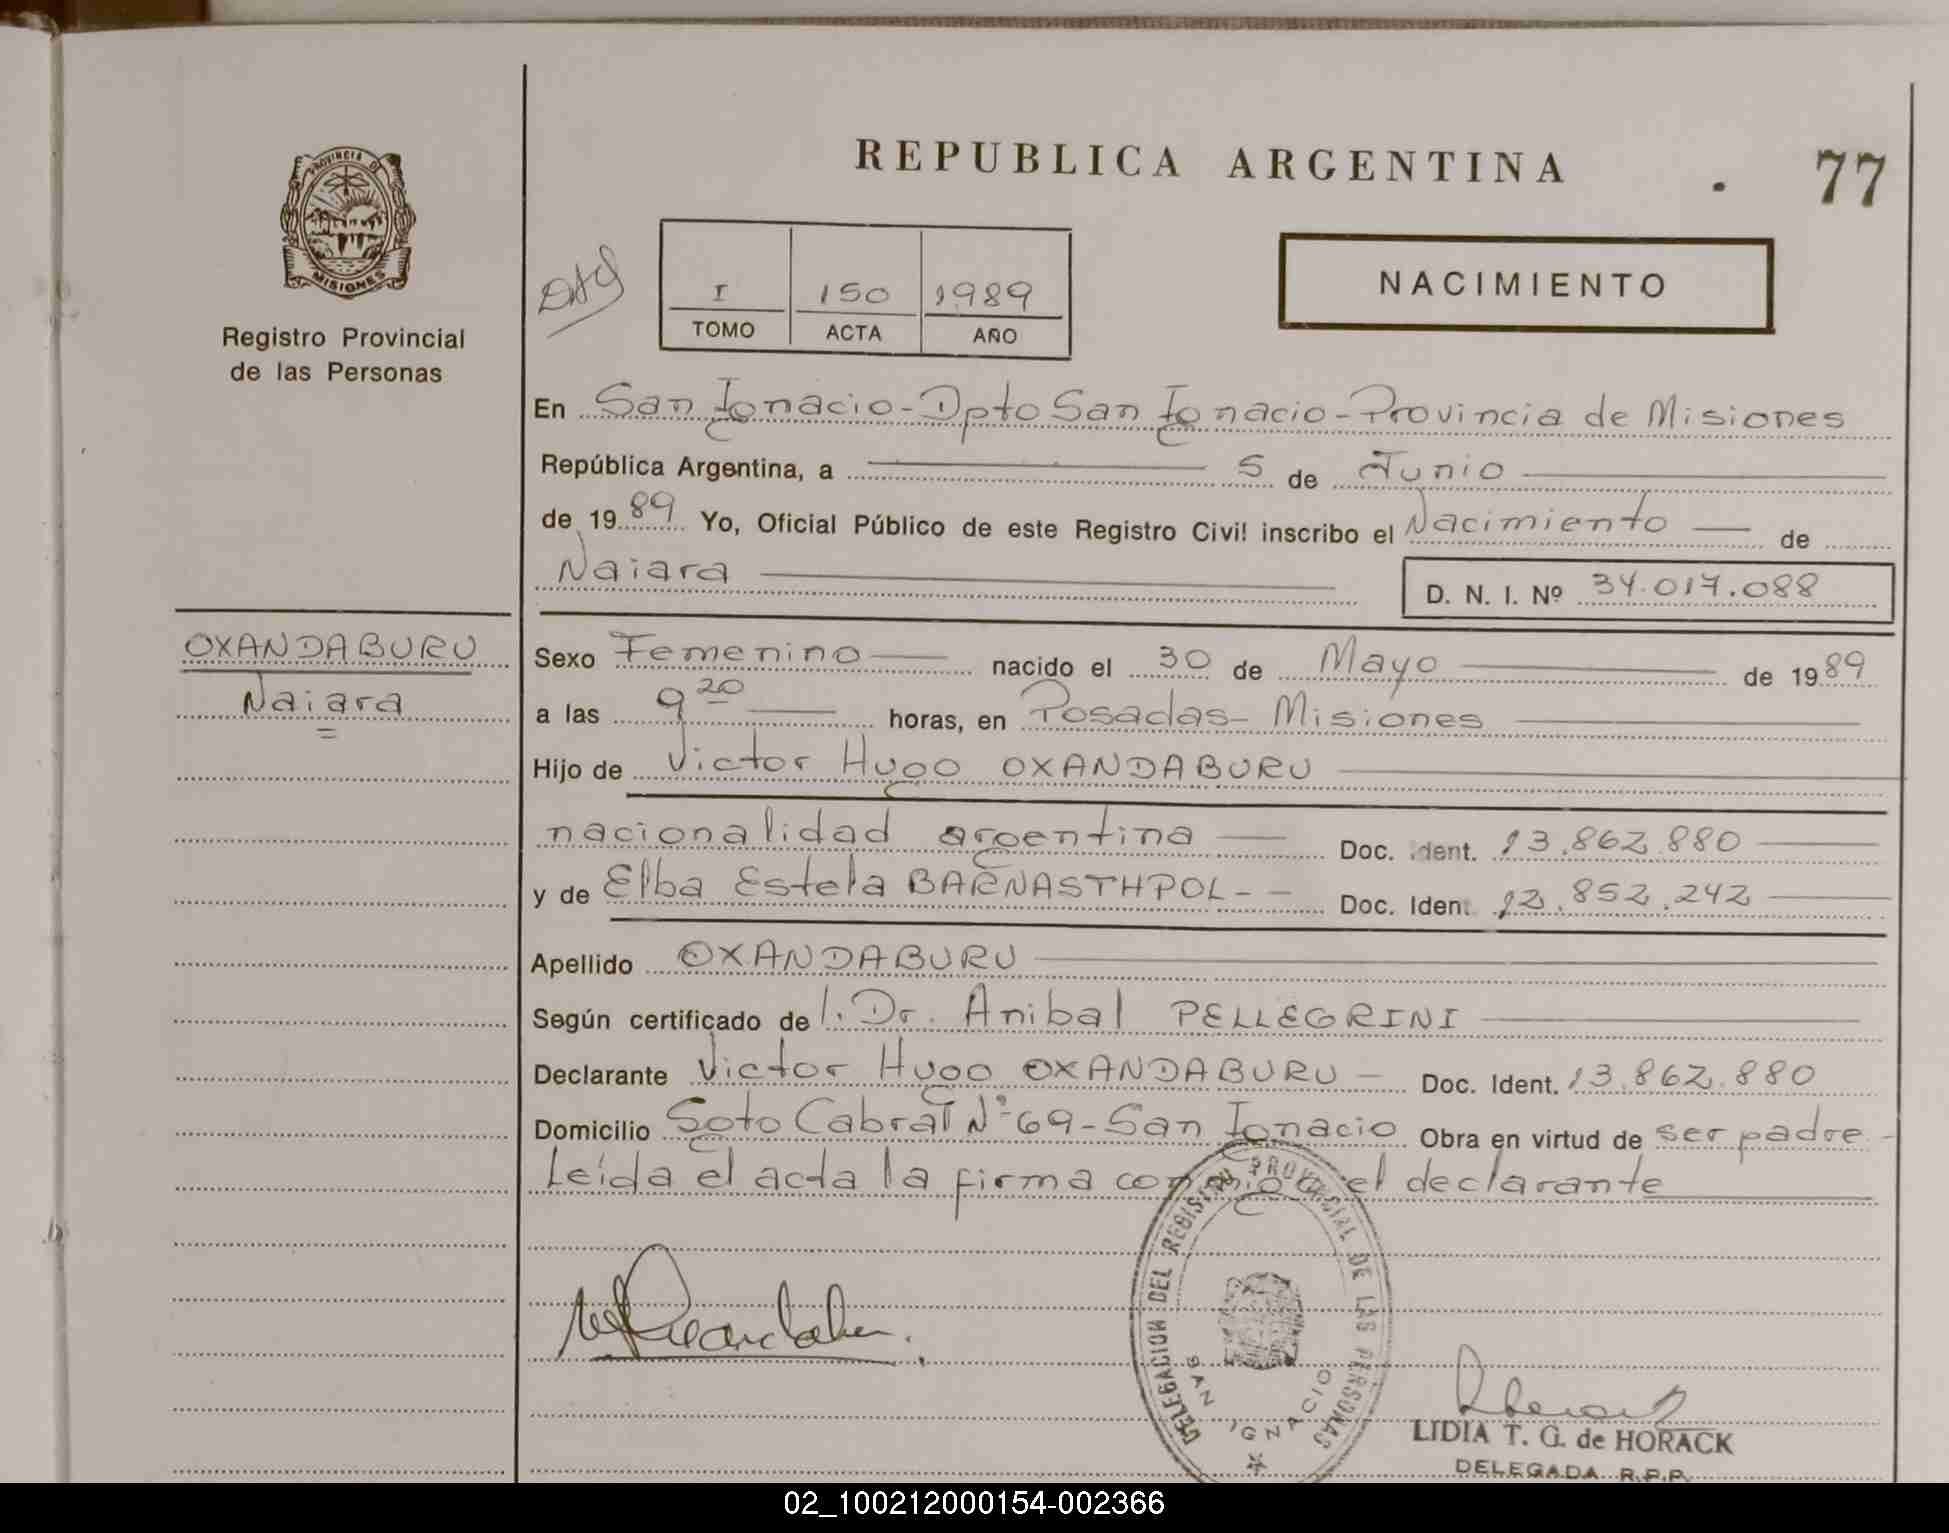 REPUBLICA ARGENTINA
77
PROVINCIA DE
MISIONES
Registro Provincial
de las Personas
I 150 1989
TOMO ACTA AÑO
NACIMIENTO
En San Ignacio - Dpto San Ignacio - Provincia de Misiones
República Argentina, a 5 de Junio
de 1989 Yo, Oficial Público de este Registro Civil inscribo el Nacimiento de
Naiara
D. N. I. Nº 34.017.088
OXANDABURU
Naiara
Sexo Femenino nacido el 30 de Mayo de 1989
a las 9 20 horas, en Posadas - Misiones
Hijo de Victor Hugo OXANDABURU
nacionalidad argentina Doc. Ident. 13.862.880
y de Elba Estela BARNASTHPOL - - Doc. Ident. 12.852.242
Apellido OXANDABURU
Según certificado de l. Dr. Anibal PELLEGRINI
Declarante Victor Hugo OXANDABURU - Doc. Ident. 13.862.880
Domicilio Soto Cabral Nº 69 - San Ignacio Obra en virtud de ser padre -
Leída el acta la firma conmigo el declarante
DELEGACION DEL REGISTRO PROVINCIAL DE LAS PERSONAS
SAN IGNACIO
LIDIA T. G. de HORACK
DELEGADA R.P.P.
02_100212000154-002366